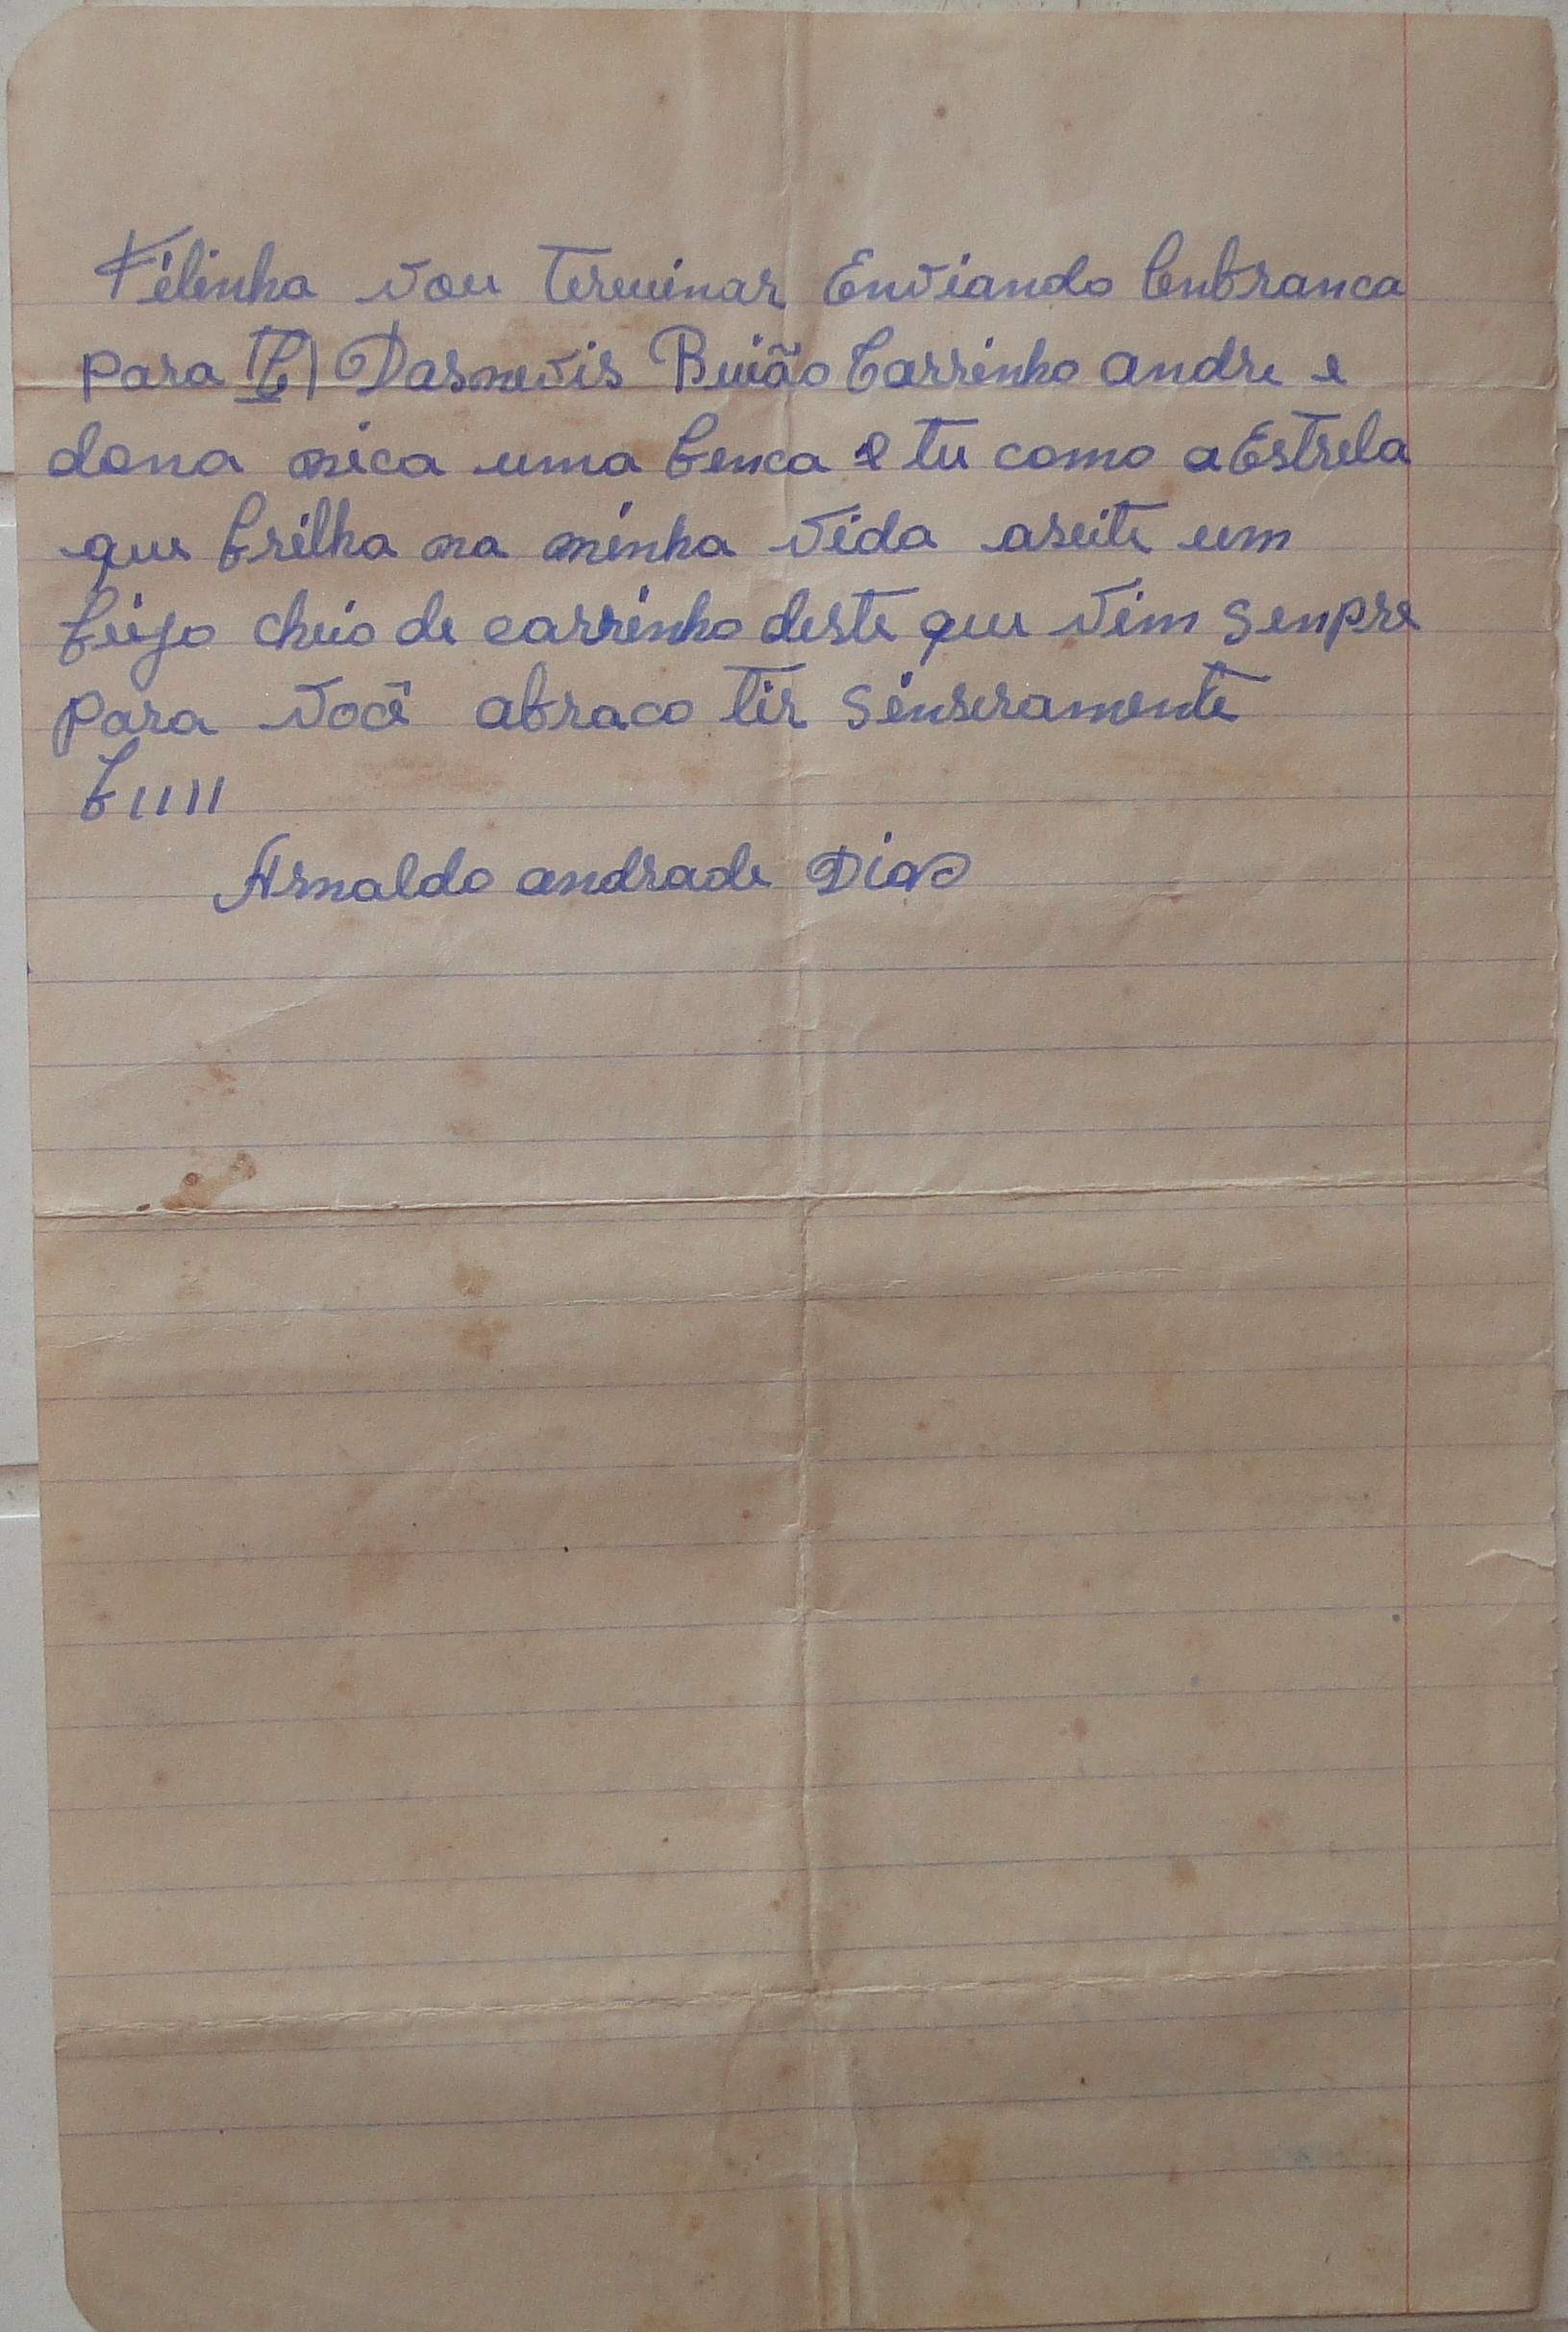 Félinha vou terminar Enviando lenbranca
para Dasnevis Buião Carrinho andre e
dona nica uma benca e tu como a Estrela
que brilha na minha vida aseite um
beijo cheio de carrinho deste que vim senpre
para você abraco tir sinseramente
Arnaldo andrade Dias